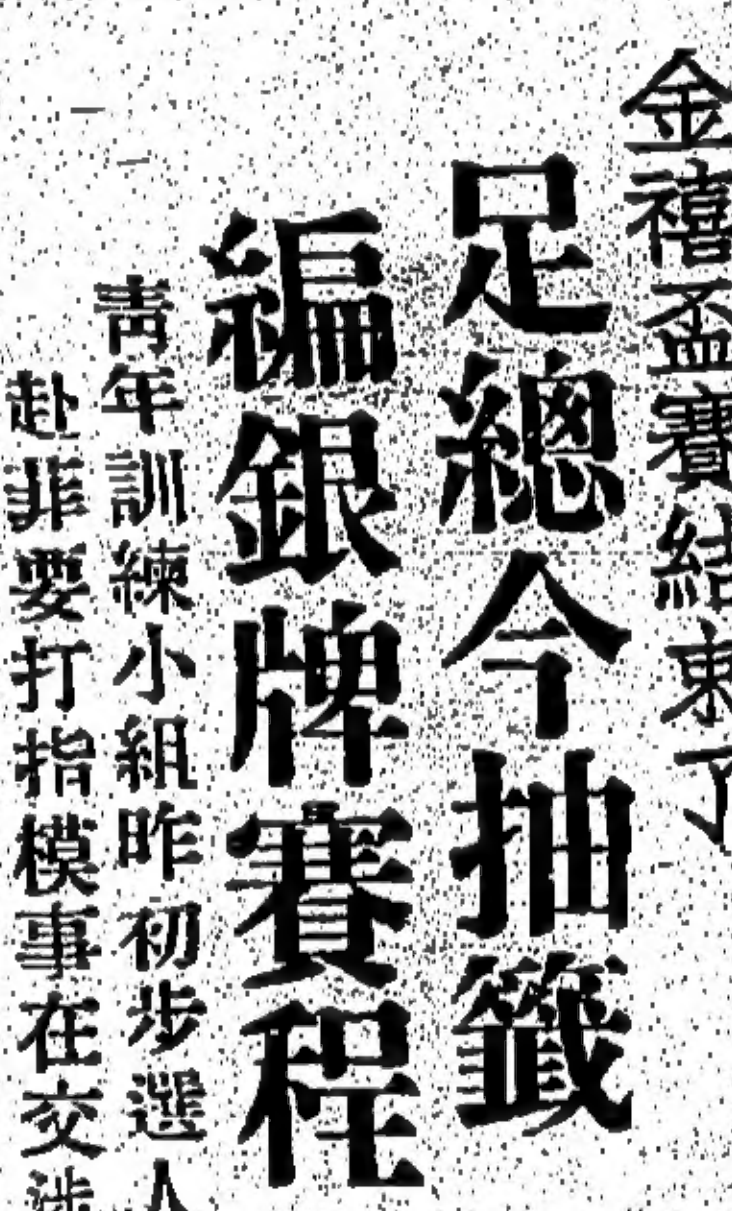 金禧盃賽結束了
足總今抽籤
編銀牌賽程
靑年訓練小組昨初步選人
赴菲要打指模事在交涉